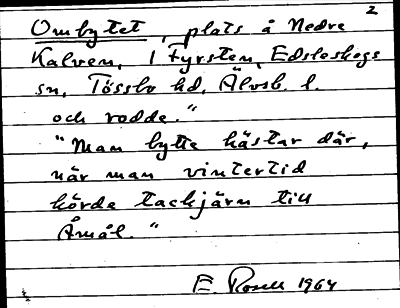 2
Ombytet, plats å Nedre
Kalven, i Fyrsten, Edsleskogs
sn, Tössbo hd, Älvsb. l.
och rodde."
"Man bytte hästar där,
när man vintertid
körde tackjärn till
Åmål."
E. Rosell 1964